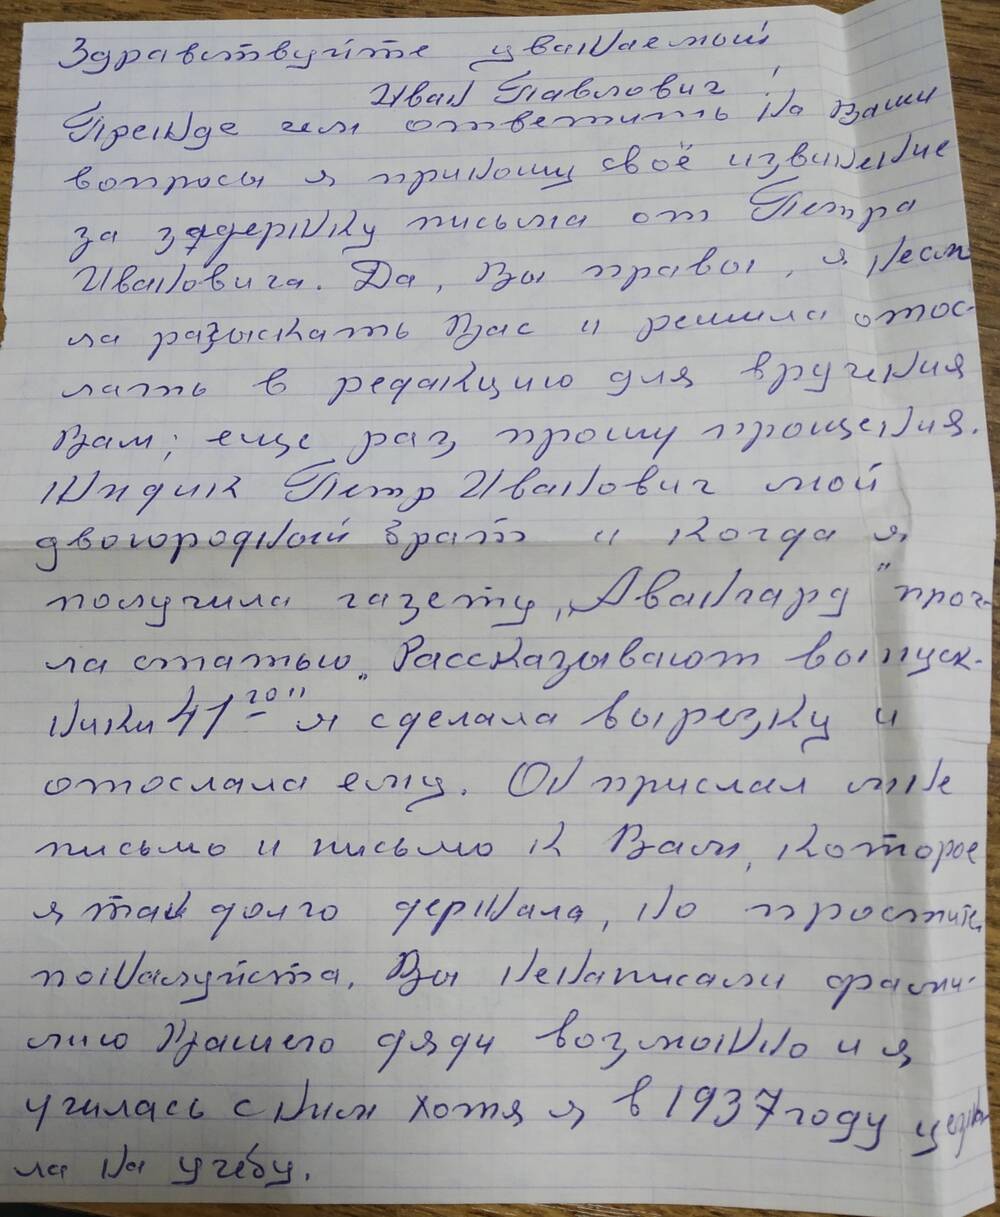 Здравствуйте уважаемый
Иван Павлович!
Прежде чем ответить на Ваши
вопросы я приношу своё извинение
за задержку письма от Петра
Ивановича. Да, Вы правы, я не см
ла разыскать Вас и решила отос-
лать в редакцию для вручения
Вам; еще раз прошу прощения.
Жидик Петр Иванович мой
двоюродный брат и когда я
получила газету „Авангард" проч-
ла статью „Рассказывают выпуск-
ники 41го" я сделала вырезку и
отослала ему. Он прислал мне
письмо и письмо к Вам, которое
я так долго держала, но простите
пожалуйста. Вы ненаписали фами-
лию Вашего дяди возможно и я
училась с ним хотя я в 1937 году уезжа
ла на учебу.